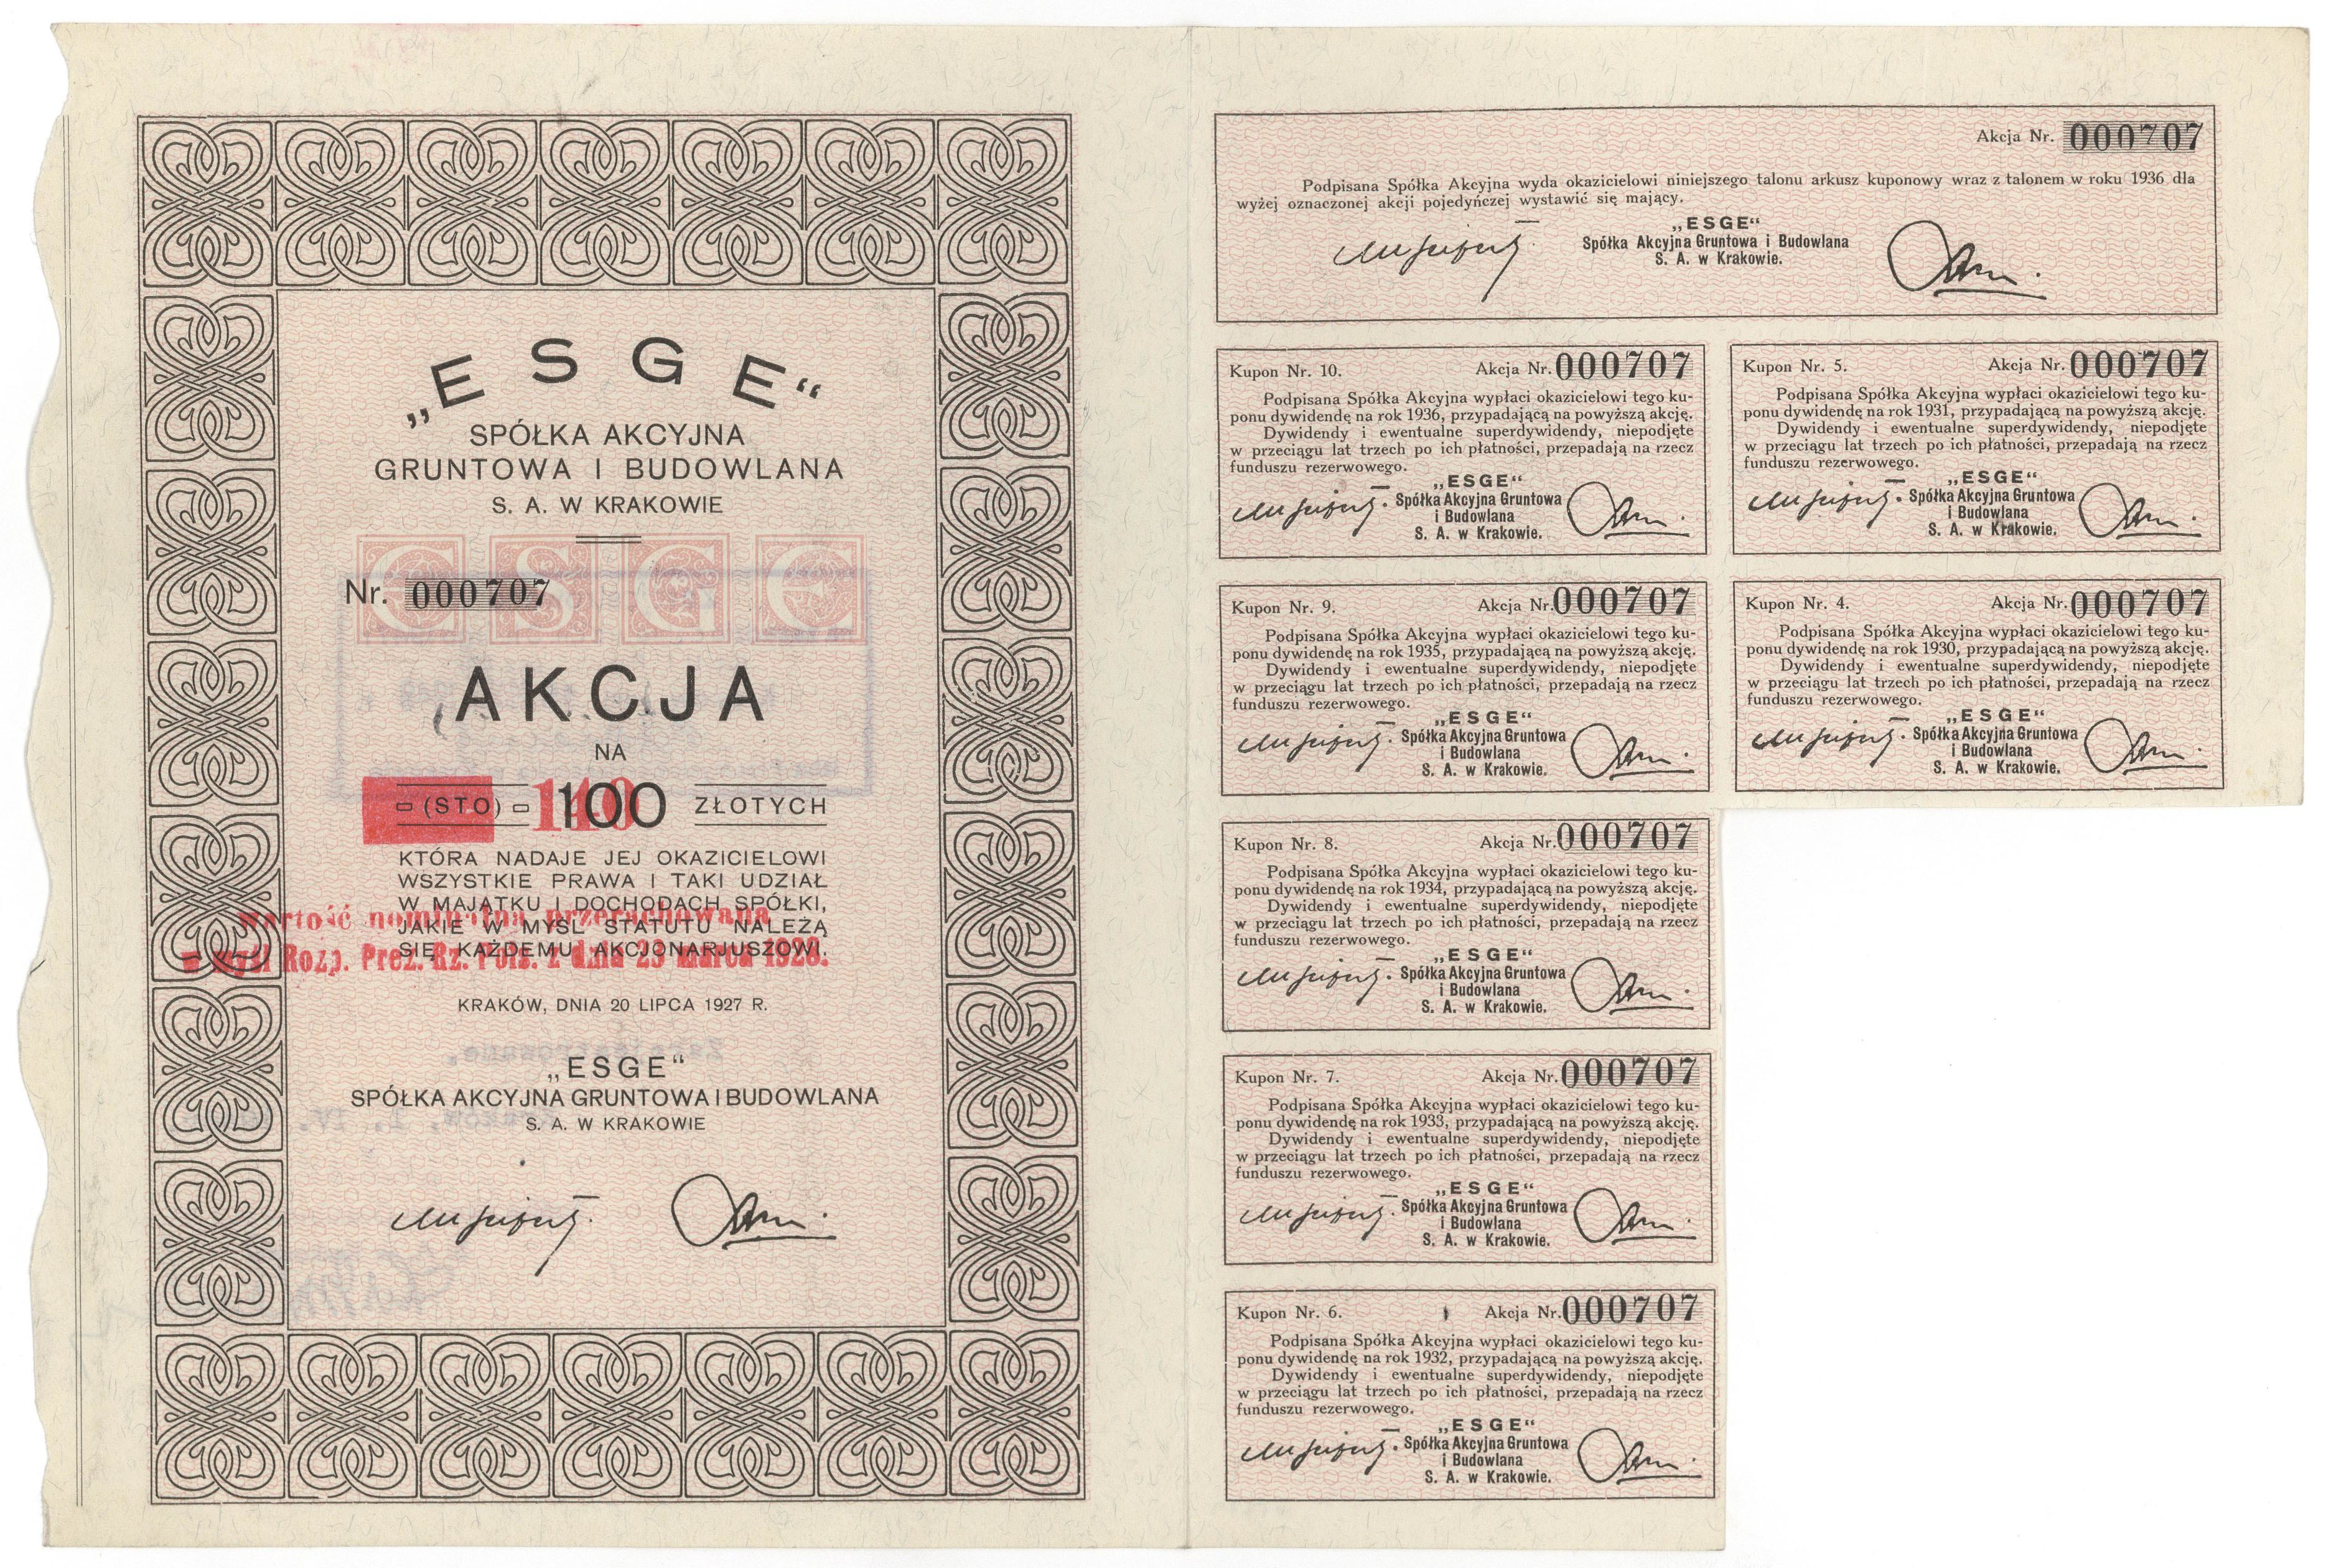 „ESGE“
SPÓŁKA AKCYJNA
GRUNTOWA I BUDOWLANA
S. A. W KRAKOWIE
ESGE
Nr. 000707
AKCJA
NA
(STO) 140 100 ZŁOTYCH
KTÓRA NADAJE JEJ OKAZICIELOWI
WSZYSTKIE PRAWA I TAKI UDZIAŁ
W MAJĄTKU I DOCHODACH SPÓŁKI,
JAKIE W MYŚL STATUTU NALEŻĄ
SIĘ KAŻDEMU AKCJONARJUSZOWI.
Wartość nominalna przerachowana
w myśl Rozp. Prez. Rz. Pols. z dnia 23 marca 1928.
KRAKÓW, DNIA 20 LIPCA 1927 R.
„ESGE“
SPÓŁKA AKCYJNA GRUNTOWA I BUDOWLANA
S. A. W KRAKOWIE
Akcja Nr. 000707
Podpisana Spółka Akcyjna wyda okazicielowi niniejszego talonu arkusz kuponowy wraz z talonem w roku 1936 dla
wyżej oznaczonej akcji pojedyńczej wystawić się mający.
„ESGE“
Spółka Akcyjna Gruntowa i Budowlana
S. A. w Krakowie.
Kupon Nr. 10. Akcja Nr. 000707
Podpisana Spółka Akcyjna wypłaci okazicielowi tego ku-
ponu dywidendę na rok 1936, przypadającą na powyższą akcję.
Dywidendy i ewentualne superdywidendy, niepodjęte
w przeciągu lat trzech po ich płatności, przepadają na rzecz
funduszu rezerwowego.
„ESGE“
Spółka Akcyjna Gruntowa
i Budowlana
S. A. w Krakowie.
Kupon Nr. 5. Akcja Nr. 000707
Podpisana Spółka Akcyjna wypłaci okazicielowi tego ku-
ponu dywidendę na rok 1931, przypadającą na powyższą akcję.
Dywidendy i ewentualne superdywidendy, niepodjęte
w przeciągu lat trzech po ich płatności, przepadają na rzecz
funduszu rezerwowego.
„ESGE“
Spółka Akcyjna Gruntowa
i Budowlana
S. A. w Krakowie.
Kupon Nr. 9. Akcja Nr. 000707
Podpisana Spółka Akcyjna wypłaci okazicielowi tego ku-
ponu dywidendę na rok 1935, przypadającą na powyższą akcję.
Dywidendy i ewentualne superdywidendy, niepodjęte
w przeciągu lat trzech po ich płatności, przepadają na rzecz
funduszu rezerwowego.
„ESGE“
Spółka Akcyjna Gruntowa
i Budowlana
S. A. w Krakowie.
Kupon Nr. 4. Akcja Nr. 000707
Podpisana Spółka Akcyjna wypłaci okazicielowi tego ku-
ponu dywidendę na rok 1930, przypadającą na powyższą akcję.
Dywidendy i ewentualne superdywidendy, niepodjęte
w przeciągu lat trzech po ich płatności, przepadają na rzecz
funduszu rezerwowego.
„ESGE“
Spółka Akcyjna Gruntowa
i Budowlana
S. A. w Krakowie.
Kupon Nr. 8. Akcja Nr. 000707
Podpisana Spółka Akcyjna wypłaci okazicielowi tego ku-
ponu dywidendę na rok 1934, przypadającą na powyższą akcję.
Dywidendy i ewentualne superdywidendy, niepodjęte
w przeciągu lat trzech po ich płatności, przepadają na rzecz
funduszu rezerwowego.
„ESGE“
Spółka Akcyjna Gruntowa
i Budowlana
S. A. w Krakowie.
Kupon Nr. 7. Akcja Nr. 000707
Podpisana Spółka Akcyjna wypłaci okazicielowi tego ku-
ponu dywidendę na rok 1933, przypadającą na powyższą akcję.
Dywidendy i ewentualne superdywidendy, niepodjęte
w przeciągu lat trzech po ich płatności, przepadają na rzecz
funduszu rezerwowego.
„ESGE“
Spółka Akcyjna Gruntowa
i Budowlana
S. A. w Krakowie.
Kupon Nr. 6. Akcja Nr. 000707
Podpisana Spółka Akcyjna wypłaci okazicielowi tego ku-
ponu dywidendę na rok 1932, przypadającą na powyższą akcję.
Dywidendy i ewentualne superdywidendy, niepodjęte
w przeciągu lat trzech po ich płatności, przepadają na rzecz
funduszu rezerwowego.
„ESGE“
Spółka Akcyjna Gruntowa
i Budowlana
S. A. w Krakowie.